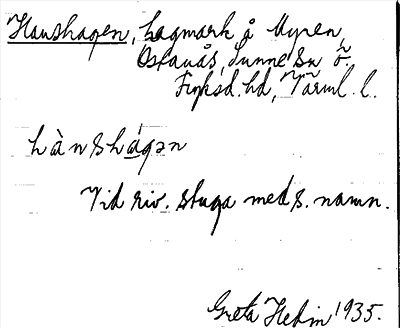 Hanshagen, hagmark å Myren,
Ostanås, Sunne sn ö.
Fryksd. hd, Värml. l.
hànshágən
Vid riv. stuga med s. namn.
Greta Hedin 1935.